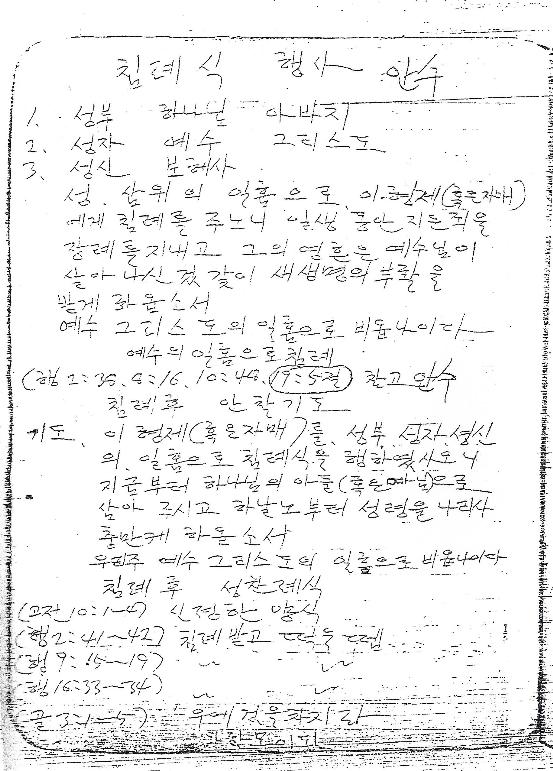 침례식 행사 안수
1. 성부 하나님 아바지
2. 성자 예수 그리스도
3. 성신 보혜사
성, 삼위의 일홈으로, 이 형제(혹은자매)
에게 침례를 주노니 일생 동안 지은죄을
장례를지내고 그의 영혼은 예수님이
살아나신것 같이 새생명의 부활을
받게 하옵소서
예수 그리스도의 일홈으로 비옵나이다
예수의 일홈으로 침례
(행 2:38, 8:16, 10:48, 19:5절) 참고 안수
침례후 안찰기도
기도, 이 형제(혹은자매)를, 성부, 성자, 성신
의, 일홈으로 침례식을 행하였사오니
지금부터 하나님의 아들(혹은 )으로
삼아 주시고 하날노부터 성령을 나리사
충만케 하옵소서
우리주 예수 그리스도의 일홈으로 비옵나이다
침례 후 성찬례식
(고전 10:1~4) 신령한 양식
(행2:41~42) 침례받고 떡을 뗌
(행 9:18~19) 〃 〃
(행 16:33~34) 〃 〃
(골 3:1~5) 우에것을차지라